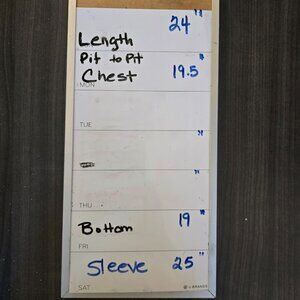 Length 24"
Pit to Pit
Chest 19.5"
MON
TUE
"
"
THU
Bottom 19"
FRI
Sleeve 25"
SAT
U BRANDS